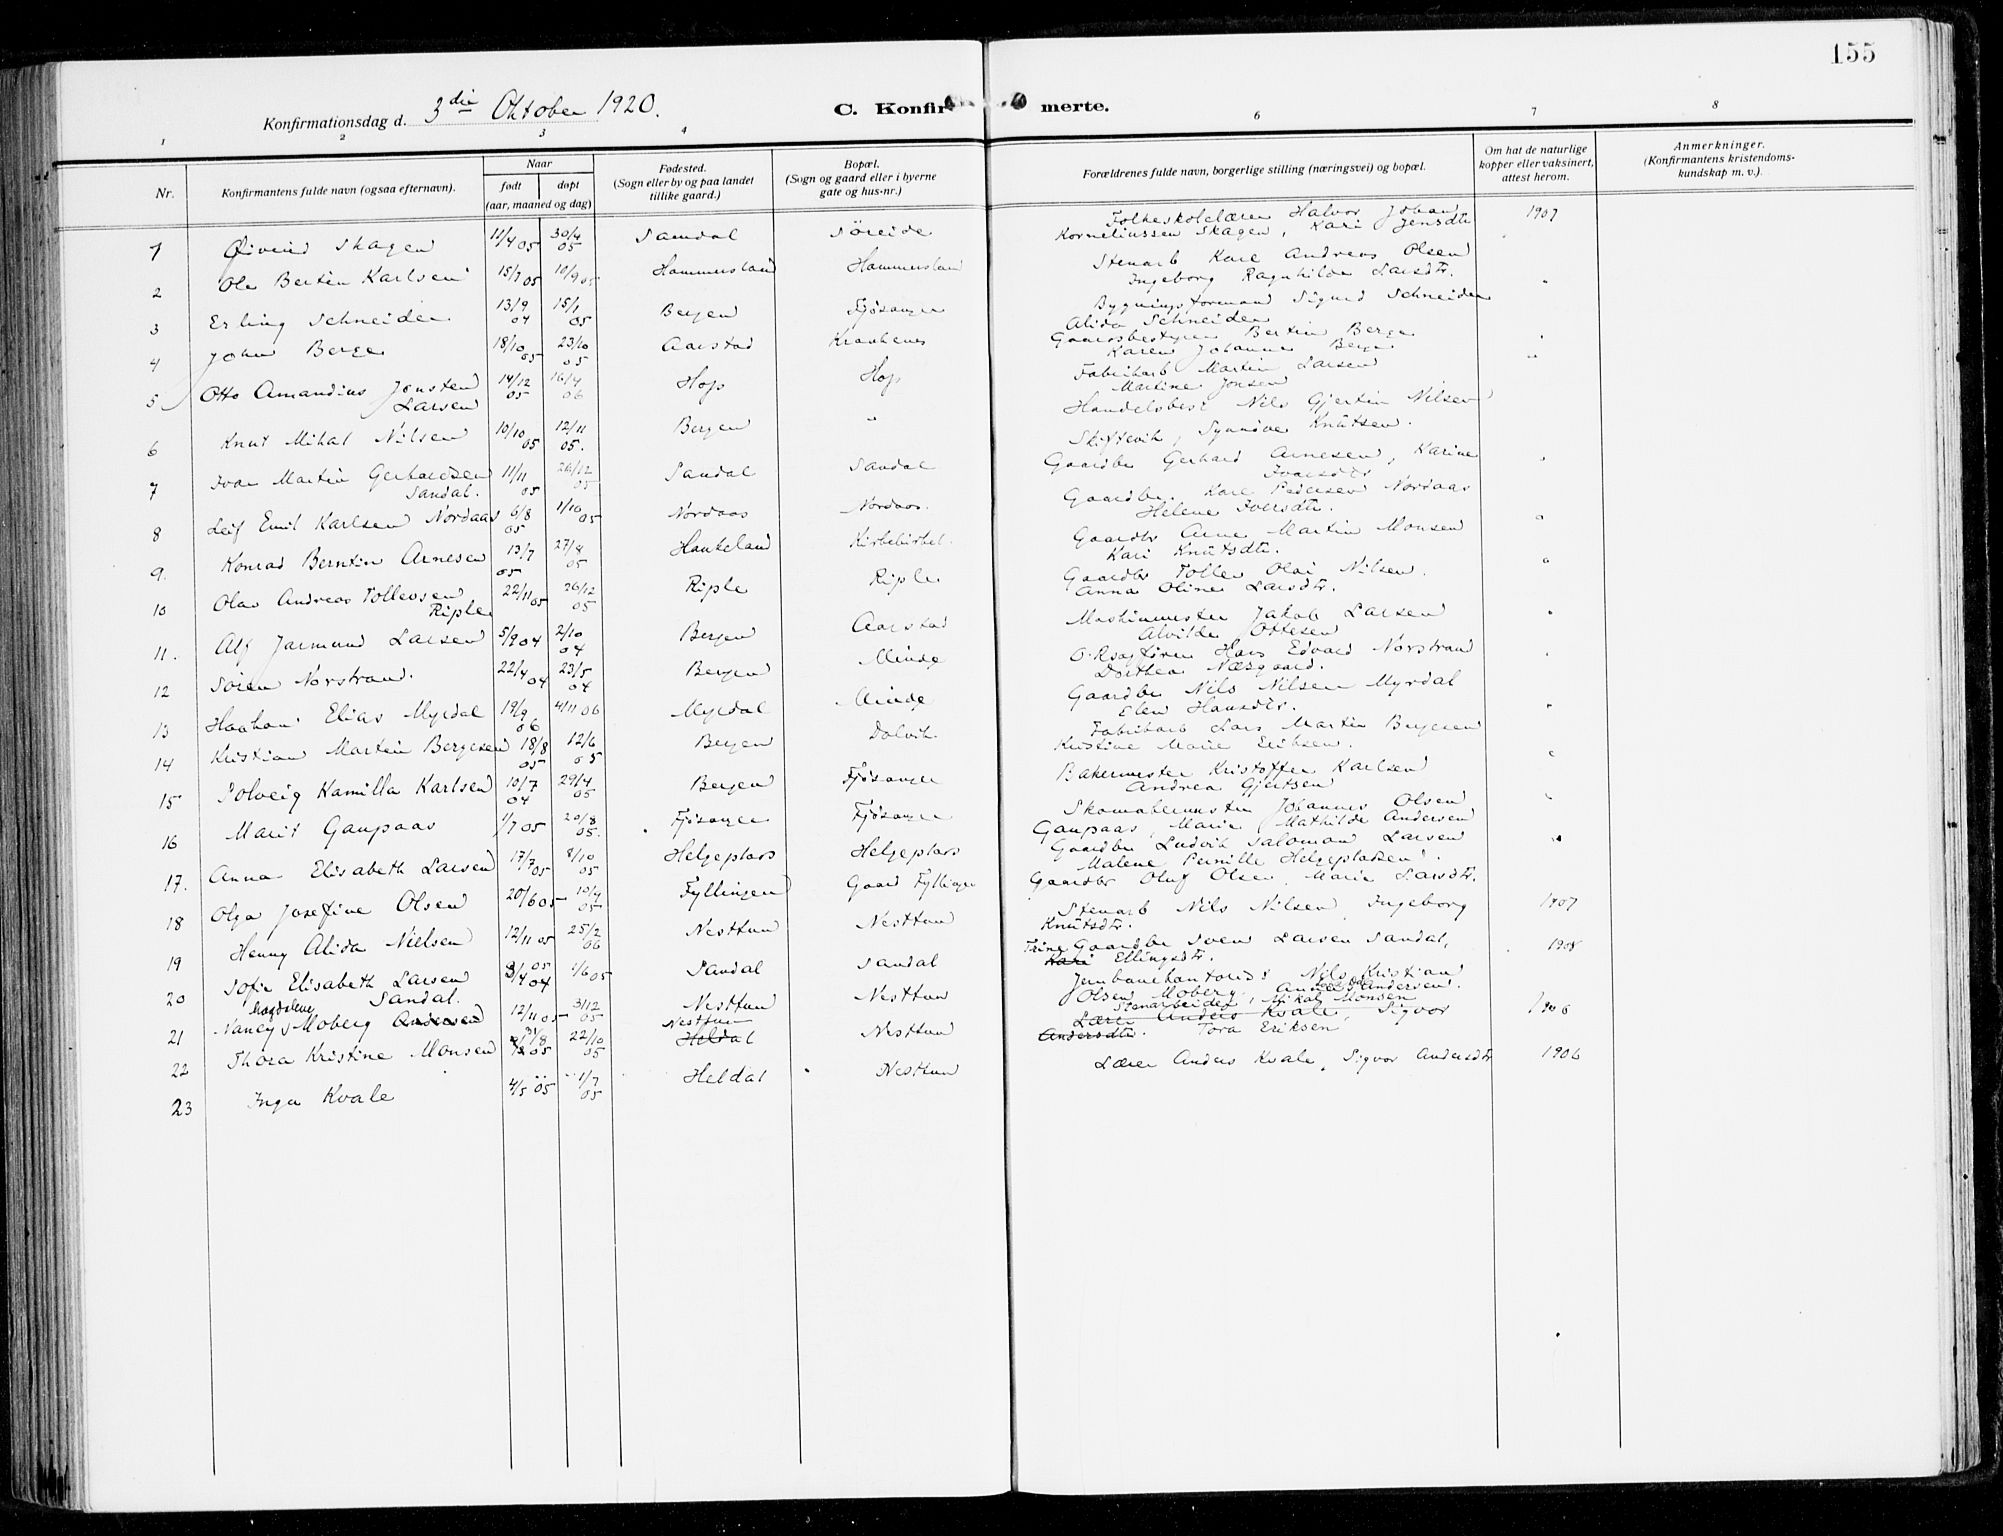 155
Konfirmationsdag d. 3die Oktober 1920.
C. Konfir merte.
1 2 3 4 6 7 8
Nr.
Konfirmantens fulde navn (ogsaa efternavn).
Naar
født døpt
(aar, maaned og dag)
Fødested.
(Sogn eller by og paa landet
tillike gaard.)
Bopæl.
(Sogn og gaard eller i byerne
gate og hus-nr.)
Forældrenes fulde navn, borgerlige stilling (næringsvei) og bopæl.
Om hat de naturlige
kopper eller vaksinert,
attest herom.
Anmerkninger.
(Konfirmantens kristendoms-
kundskap m. v.).
1 Øivind Skagen 11/4 05 30/4 05 Samdal Søreide Folkeskolelærer Halvor Johan
Korneliussen Skagen, Kari Jensdtr 1907
2 Ole Bertin Karlsen 15/7 05 10/9 05 Hammersland Hammersland Stenarb Karl Andreas Olsen
Ingeborg Ragnhilde Larsdtr. "
3 Erling Schneider 13/9 04 15/1 05 Bergen Fjøsanger Bygningsformand Sigurd Schneider
Alida Schneider
4 John Berge 18/10 05 23/10 05 Aarstad Kraakenes Gaardsbestyrer Bertin Berge
Karen Johanne Berge "
5 Otto Amandius Jonsten
Larsen 14/12 05 16/4 06 Hop Hop Fabrikarb Martin Larsen
Martine Jonsen "
6 Knut Mikal Nilsen 10/10 05 12/11 05. Bergen " Handelsbest Nils Gjertin Nilsen
Skiftevik, Synnøve Knutsen.
7 Ivar Martin Gerhardsen
Sandal. 11/11 05 26/12 05 Sandal Sandal Gaardbr Gerhard Arnesen, Karine
Ivarsdtr "
8 Leif Emil Karlsen Nordaas 6/8 05 1/10 05 Nordaas Nordaas. Gaardbr. Karl Pedersen Nordaas
Helene Iversdtr.
9. Konrad Berntin Arnesen 13/7 05 27/8 05 Haukeland Kirkebirkel. Gaardbr Arne Martin Monsen
Kari Knutsdtr. "
10 Olav Andreas Tollevsen
Riple 22/11 05 26/12 05 Riple Riple Gaardbr Tollev Olai Nilsen.
Anna Oline Larsdtr. "
11. Alf Jarmund Larsen 5/9 04 2/10 04 Bergen Aarstad Maskinmester Jakob Larsen
Alvilde Ottesen "
12 Søren Norstrand. 22/4 04 23/5 04 Bergen Minde O.R.sagfører Hans Edvard Norstrand
Dorthea Næsgaard. "
13 Haakon Elias Myrdal 19/9 06 4/11 06 Myrdal Minde Gaardbr Nils Nilsen Myrdal
Elen Hansdtr. "
14 Kristian Martin Bergesen 18/8 05 12/6 05 Bergen Dolvik. Fabrikarb Lars Martin Bergesen
Kristine Marie Eriksen.
15 Solveig Kamilla Karlsen 10/7 04 29/4 05 Bergen Fjøsanger Bakermester Kristoffer Karlsen
Andrea Gjertsen "
16 Marit Gaupaas 1/7 05 20/8 05. Fjøsanger Fjøsanger Skomakermester Johannes Olsen
Gaupaas, Marie Mathilde Andersen "
17. Anna Elisabeth Larsen 17/7 05 8/10 05 Helgeplars Helgeplars Gaardbr Ludvik Salomon Larsen
Malene Pernille Helgeplassen. "
18 Olga Josefine Olsen 20/6 05 10/4 05 Fyllingen Gaard Fyllingen Gaardbr Oluf Olsen Marie Larsdtr.
19 Henny Alida Nielsen 12/11 05 25/2 06 Nesttun Nesttun Stenarb Nils Nilsen, Ingeborg
Knutsdtr. 1907
20 Sofie Elisabeth Larsen
Sandal. 3/4 04 05 1/6 05 Sandal Sandal Gaardbr Sven Larsen Sandal,
Trine Kari Ellingsdtr. 1908
21 Nancy Magdalene Moberg Andersen 12/11 05 3/12 05 Nesttun Nesttun Jernbanekontorist Nils Kristian
Olsen Moberg, Anna Andersen.
22 Thora Kristine Monsen 31/8 05 22/10 05 Nesttun Heldal Nesttun Stenarbeider, Mikal Monsen
Lærer Anders Kvale, Sigvor
Andersdtr. Tora Eriksen 1906
23 Inga Kvale 4/5 05 1/7 05 Heldal Nesttun Lærer Anders Kvale, Sigvor Andersdtr 1906